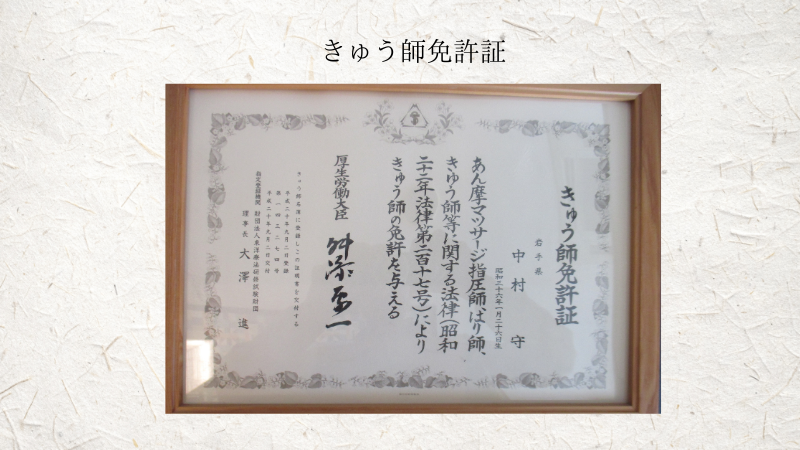 きゅう師免許証
きゅう師免許証
岩手県
中村 守
昭和三十六年一月二十六日生
あん摩マツサージ指圧師、はり師、
きゅう師等に関する法律(昭和
二十二年法律第二百十七号)により
きゅう師の免許を与える
厚生労働大臣 舛添要一
きゅう師名簿に登録しこの証明書を交付する
平成二十年九月二日登録
第一四三二七四号
平成二十年九月二日交付
指定登録機関 財団法人東洋療法研修試験財団
理事長 大澤 進